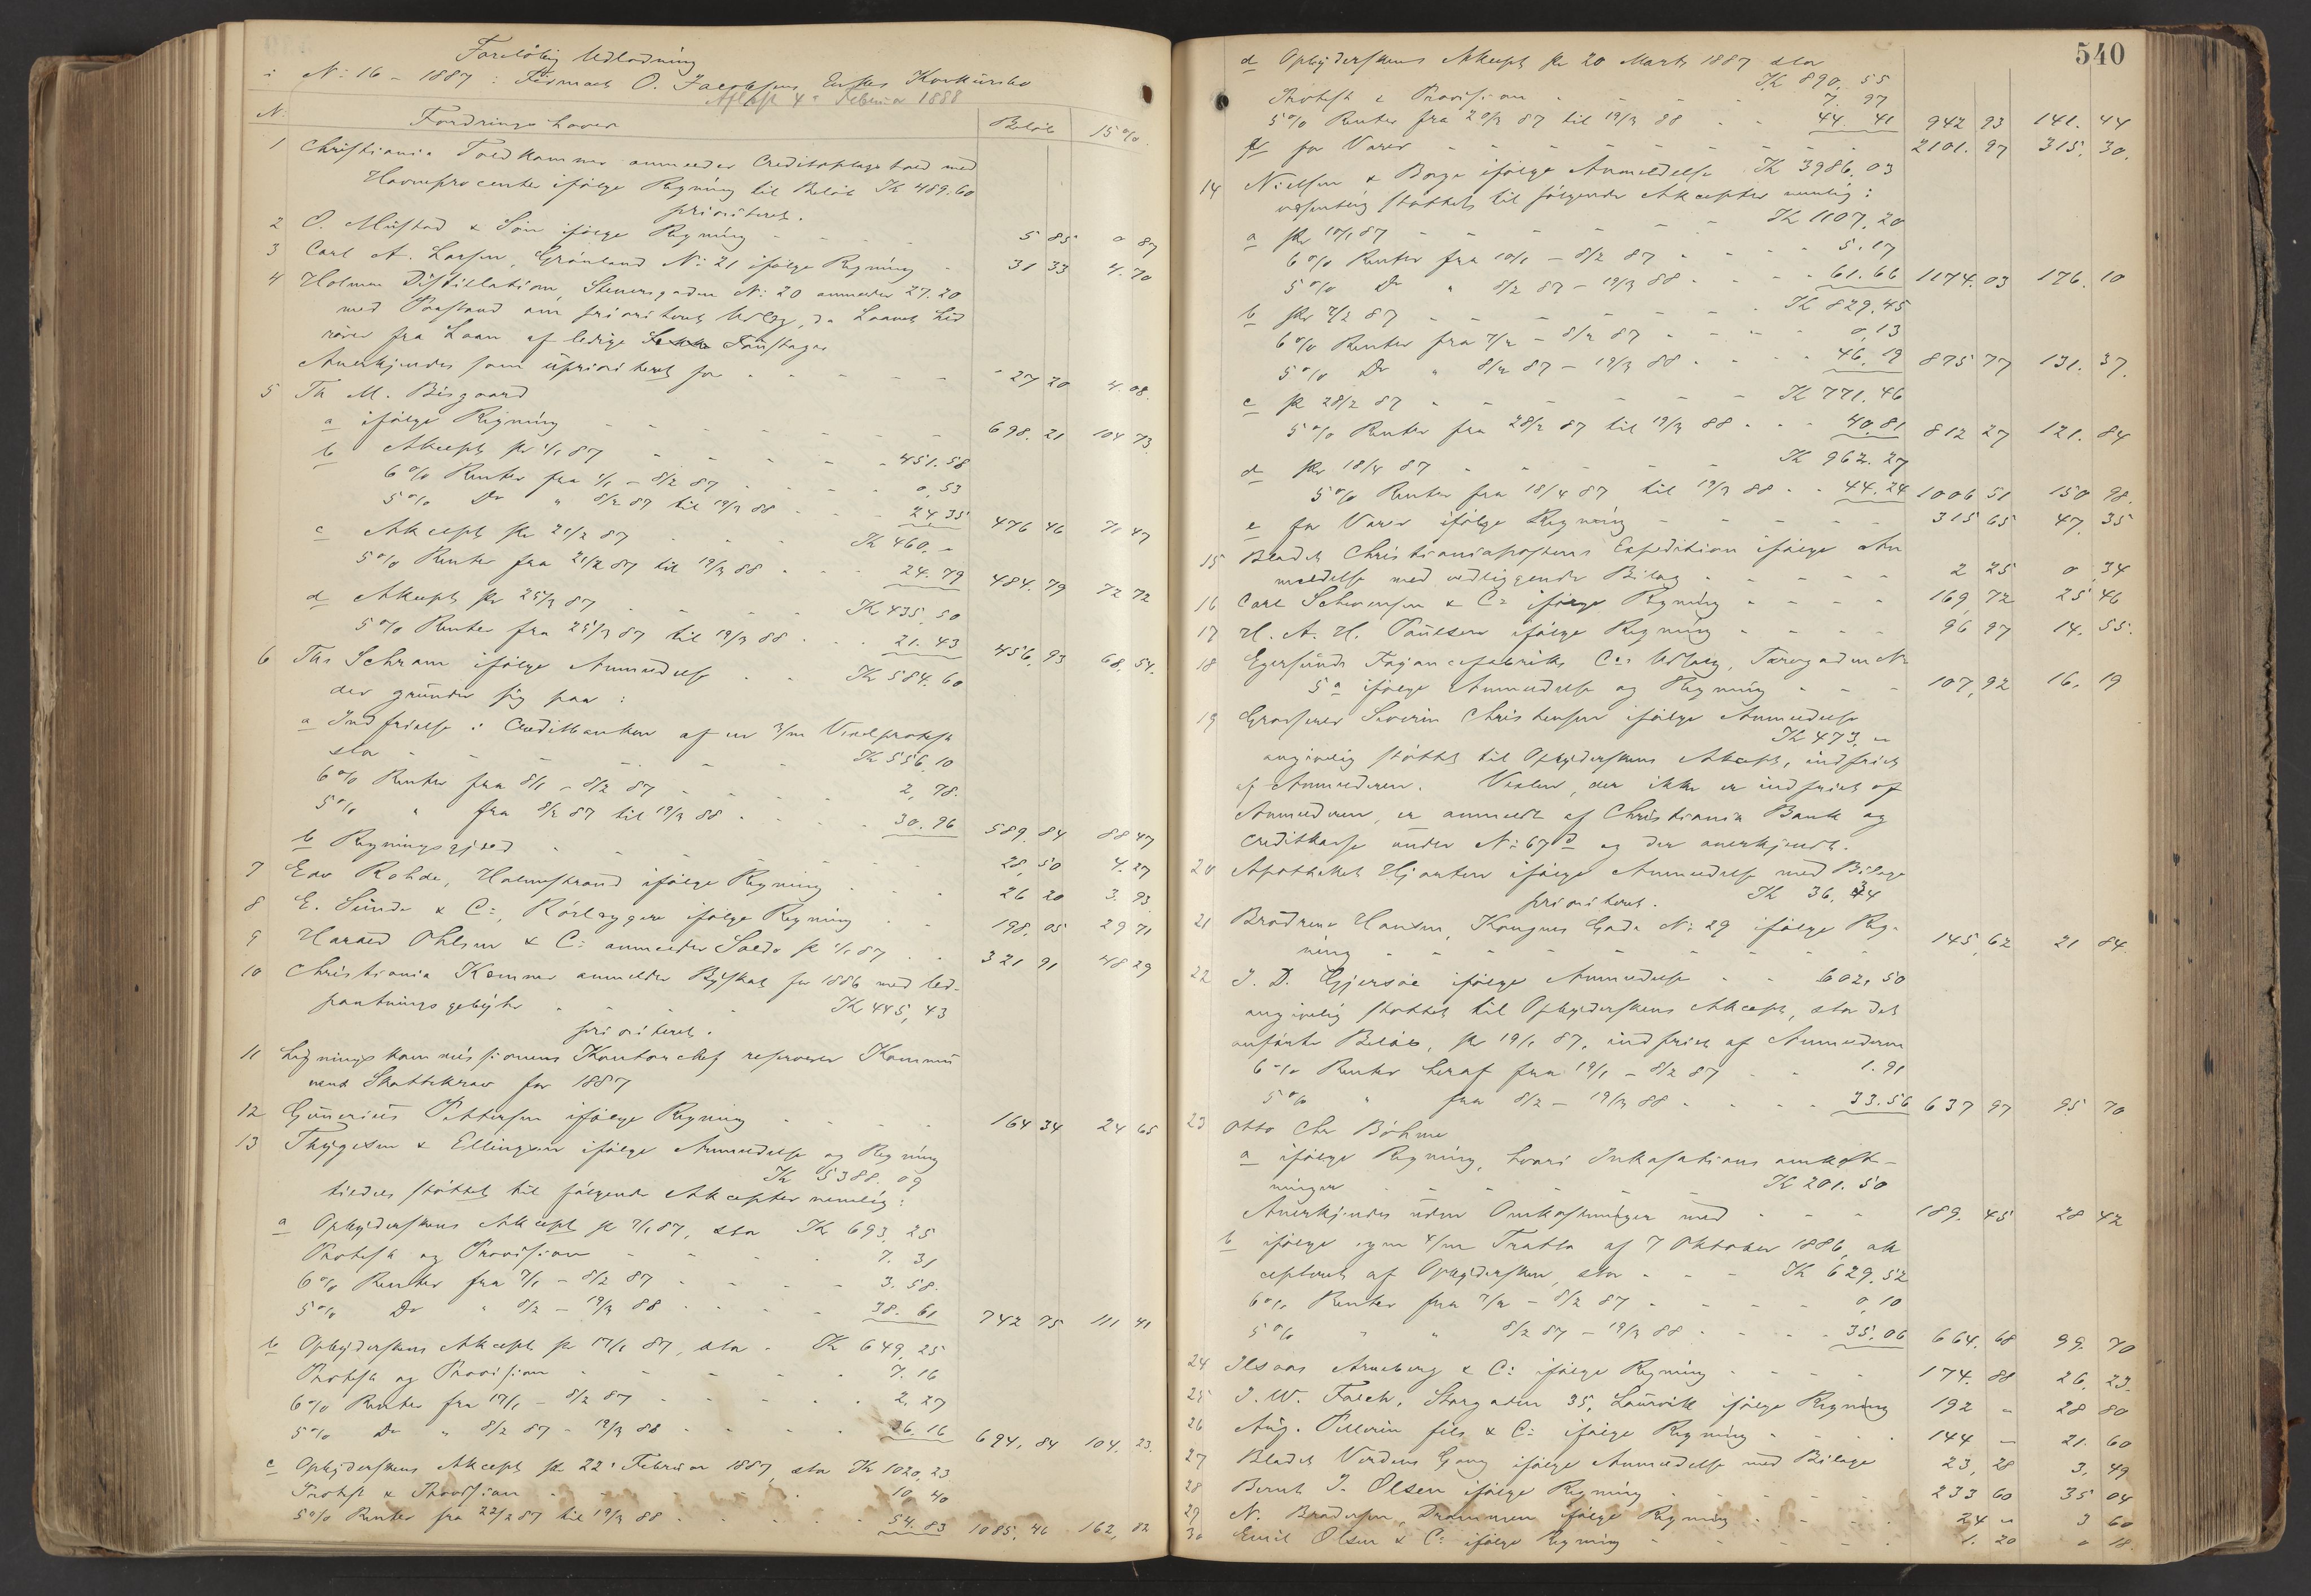 Foreløbig Udlodning
i N: 16 - 1887: Firmaet O. Jacobsens Enkes Konkursbo
Afsluttet 4 Februar 1888
N. Fordringshaver Beløb 15 %
1 Christiania Toldkammer anmelder Creditoplagstold med
Havneprocenter ifølge Regning til Beløb Kr 489.60
prioriteret.
2 O. Mustad & Søn ifølge Regning - - - 5 85 0 87
3 Carl A. Larsen, Grønland N: 21 ifølge Regning - 31 33 4.70
4 Holmen Distillation, Stenersgaden N: 20 anmelder 27.20
med Paastand om prioriteret Udlæg, da Kravet hid
rører fra Laan af ledige Fustager
Anerkjendes som uprioriteret for - - - 27 20 4.08.
5 Th M. Bisgaard
a ifølge Regning - - - 698.21 104 73.
b Akcept pr 4/1 87 - - - 451.58
6 % Renter fra 4/1 - 8/2 87 - - - 0,53
5 % Do " 8/2 87 til 19/3 88 - - - 24,35 476 46 71 47
c Akcept pr 21/2 87 - - - Kr 460. -
5 % Renter fra 21/2 87 til 19/3 88 - - - 24.79 484.79 72 72
d Akcept pr 25/3 87 - - - Kr 435,50
5 % Renter fra 25/3 87 til 19/3 88 - 21.43 456,93 68,54.
6 Ths Schram ifølge Anmeldelse - - Kr 584.60
der grunder sig paa:
a Indfrielse i Creditbanken af en 3/m Vexelprotest
stor - - - Kr 556.10
6 % Renter fra 8/1 - 8/2 87 - - - 2,78.
5 % " fra 8/2 87 til 19/3 88 - - - 30.96 589.84 88 47
b Regningsgjæld - - - 28,50 4.27
7 Edv Rohde, Holmestrand ifølge Regning - - - 26 20 3.93
8 E. Sunde & C:, Rørlæggere ifølge Regning - 198,05 29 71
9 Harald Ohlsen & C: anmelder Saldo pr 1/1 87 - - 321 91 48 29
10 Christiania Kæmner anmelder Byskat for 1886 med Ud-
pantningsgebyhr - - - Kr 445,43
prioriteret.
11 Ligningskommissionens Kontorchef reserverer Kommu
nens Skattekrav for 1887
12 Gunerius Pettersen ifølge Regning - - - 164 34 24 65
13 Thygesen & Ellingsen ifølge Anmeldelse og Regning
Kr 5388.09
tildels støttet til følgende Akcepter nemlig:
a Opbyderskens Akcept pr 7/1 87, stor Kr 693,25
Protest og Provision - - - 7.31
6 % Renter fra 7/1 - 8/2 87 - - - 3.58.
5 % Do " 8/2 - 19/3 88 - - - 38.61 742 75 111 41
b Opbyderskens Akcept pr 17/1 87, stor - Kr 649,25
Protest og Provision - - - 7.16
6 % Renter fra 17/1 - 8/2 87 - - - 2,27
5 % Do " 8/2 87 - 19/3 88 - - - 36.16 694,84 104.23.
c Opbyderskens Akcept pr 22 Februar 1887, stor Kr 1020,23
Protest & Provision - - - 10,40
5 % Renter fra 22/2 87 til 19/3 88 - - - 54.83 1085,46 162,82
540
d Opbyderskens Akcept pr 20 Marts 1887 stor
Kr 890.55
Protest & Provision - - - 7.97
5 % Renter fra 20/3 87 til 19/3 88 - - 44.41 942 93 141.44
e for Varer - - - 2101.97 315,30.
14 Nielsen & Borge ifølge Anmeldelse Kr 3986.03
væsentlig støttet til følgende Akcepter nemlig:
a pr 10/1 87 - - - Kr 1107,20
6 % Renter fra 10/1 - 8/2 87 - - - 5.17
5 % Do " 8/2 87 - 19/3 88 - - - 61.66 1174.03 176.10
b pr 7/2 87 - - - Kr 829.45
6 % Renter fra 7/2 - 8/2 87 - - - 0,13
5 % Do " 8/2 87 - 19/3 88 - - - 46.19 875 77 131.37.
c pr 28/2 87 - - - Kr 771.46
5 % Renter fra 28/2 87 til 19/3 88 - - - 40.81 812 27 121.84
d pr 18/4 87 - - - Kr 962.27
5 % Renter fra 18/4 87 til 19/3 88 - - 44.24 1006 51 150 98.
e for Varer ifølge Regning - - - 315 65 47.35
15 Bladet Christianiapostens Expedition ifølge An
meldelse med vedliggende Bilag - - - 2 25 0,34
16 Carl Schwensen & C: ifølge Regning - - - 169,72 25 46
17 H. A. H. Paulsen ifølge Regning - - - 96 97 14.55.
18 Egersunds Fayancefabriks C:s Udsalg, Torvgaden N:
5 a ifølge Anmeldelse og Regning - - - 107,92 16,19
19 Grosserer Severin Christensen ifølge Anmeldelse
Kr 473, -
angivelig støttet til Opbyderskens Akcept, indfriet
af Anmelderen. Vexlen, der ikke er indfriet af
Anmelderen, er anmeldt af Christiania Bank og
Creditkasse under N: 67 d og der anerkjendt.
20 Apotheket Hjorten ifølge Anmeldelse med Bilage
prioriteret. Kr 36.34
21 Brødrene Hansen, Kongens Gade N: 29 ifølge Reg-
ning - - - 145,62 21 84.
22 J. D. Gjersøe ifølge Anmeldelse - - 602,50
angivelig støttet til Opbyderskens Akcept, stor det
anførte Beløb, pr 19/1 87, indfriet af Anmelderen
6 % Renter heraf fra 19/1 - 8/2 87 - - 1.91
5 % " fra 8/2 - 19/3 88 - - - 33.56 637 97 95 70
23 Otto Chr Bøhme
a ifølge Regning, hvori Inkasationsomkost-
ninger - - - Kr 201.50
Anerkjendes uden Omkostninger med - - - 189.45 28 42
b ifølge egen 4/m Tratte af 7 Oktober 1886, ak
cepteret af Opbydersken, stor - - - Kr 629.52
6 % Renter fra 7/2 - 8/2 87 - - - 0,10
5 % " " 8/2 87 - 19/3 88 - - - 35,06 664.68 99.70
24 Ilsaas Arneberg & C: ifølge Regning - - - 174.88 26,23.
25 J. W. Falch, Storgaten 35, Laurvik ifølge Regning 192 - 28 80
26 Aug. Pellerin fils & C: ifølge Regning - - - 144 - 21.60
27 Bladet Verdens Gang ifølge Anmeldelse med Bilage 23,28 3,49
28 Bernt J. Olsen ifølge Regning - - - 233 60 35 04
29 N. Brodersen, Drammen ifølge Regning - - - 24 - 3 60
30 Emil Olsen & C: ifølge Regning - - - 1.20 0 18.